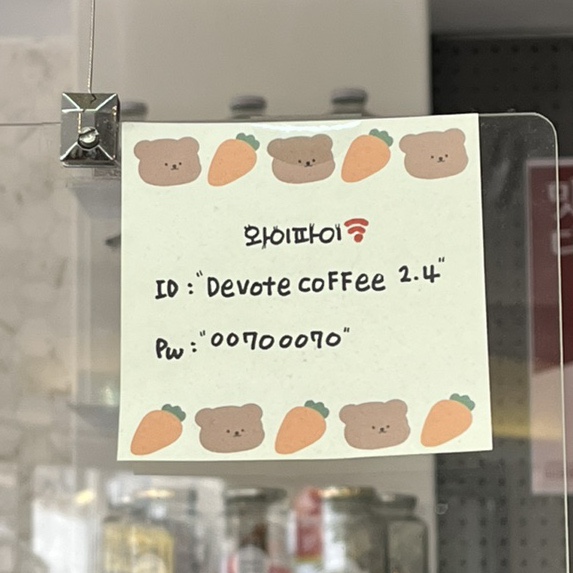 와이파이
ID : "Devote coFFee 2.4"
Pw : "00700070"